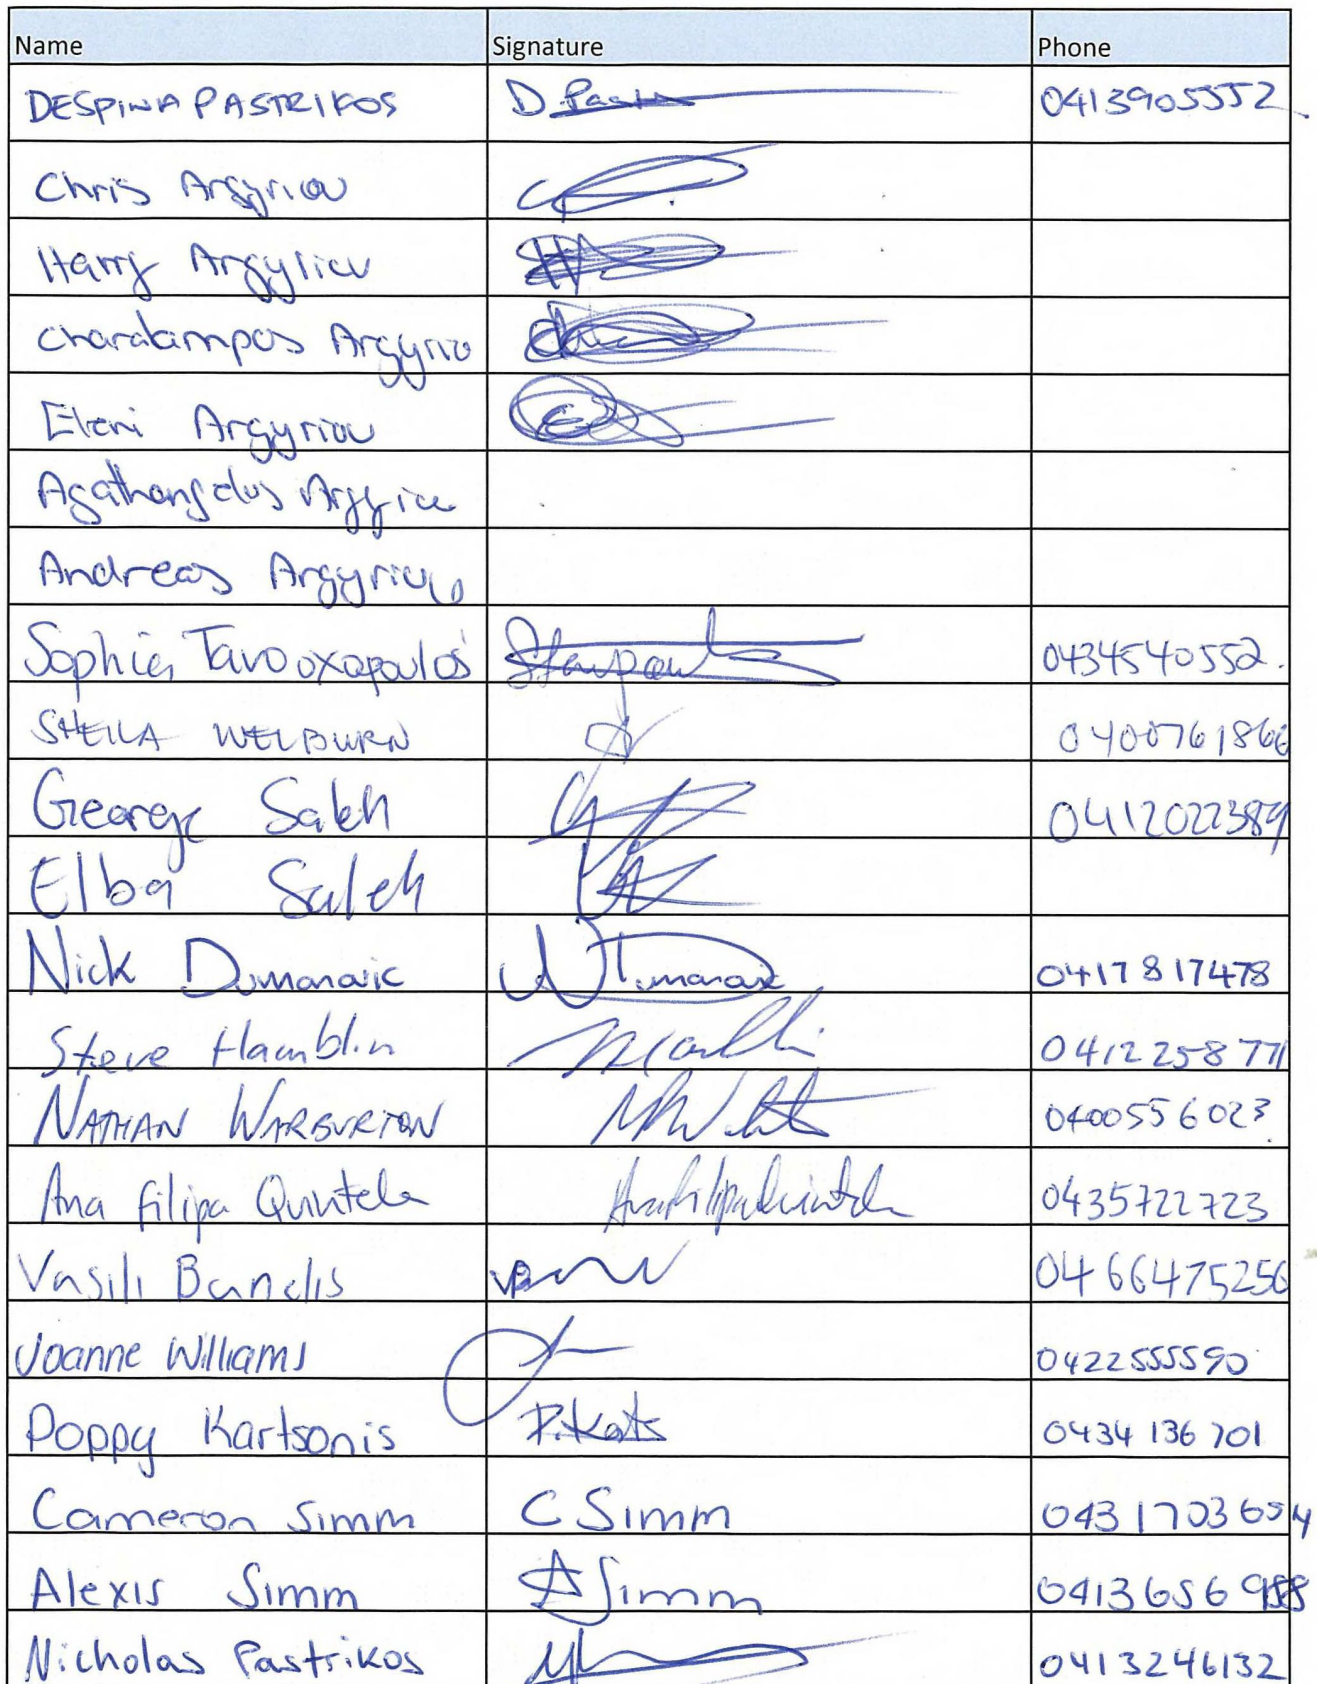 Name Signature Phone
DESPINA PASTRIKOS D 0413905552
Chris Argyriou
Harry Argyriou
Charalampos Argyrio
Eleni Argyriou
Agathangelos
Andreas Argyriou
Sophia 0434540552.
SHEILA WELBURN 0400761866
George Saleh 0412022389
Elba Saleh
Nick Dumanovic 0417817478
Steve Hamblin 0412258771
NATHAN WARBURTON 0400556023
Ana filipa Quintela Ana filipa Quintela 0435722723
Vasili Bandis 0466475256
Joanne Williams 0422555590
Poppy Kartsonis P.Kats 0434 136 701
Cameron Simm C Simm 0431703654
Alexis Simm A Simm 0413656
Nicholas Pastrikos 0413246132